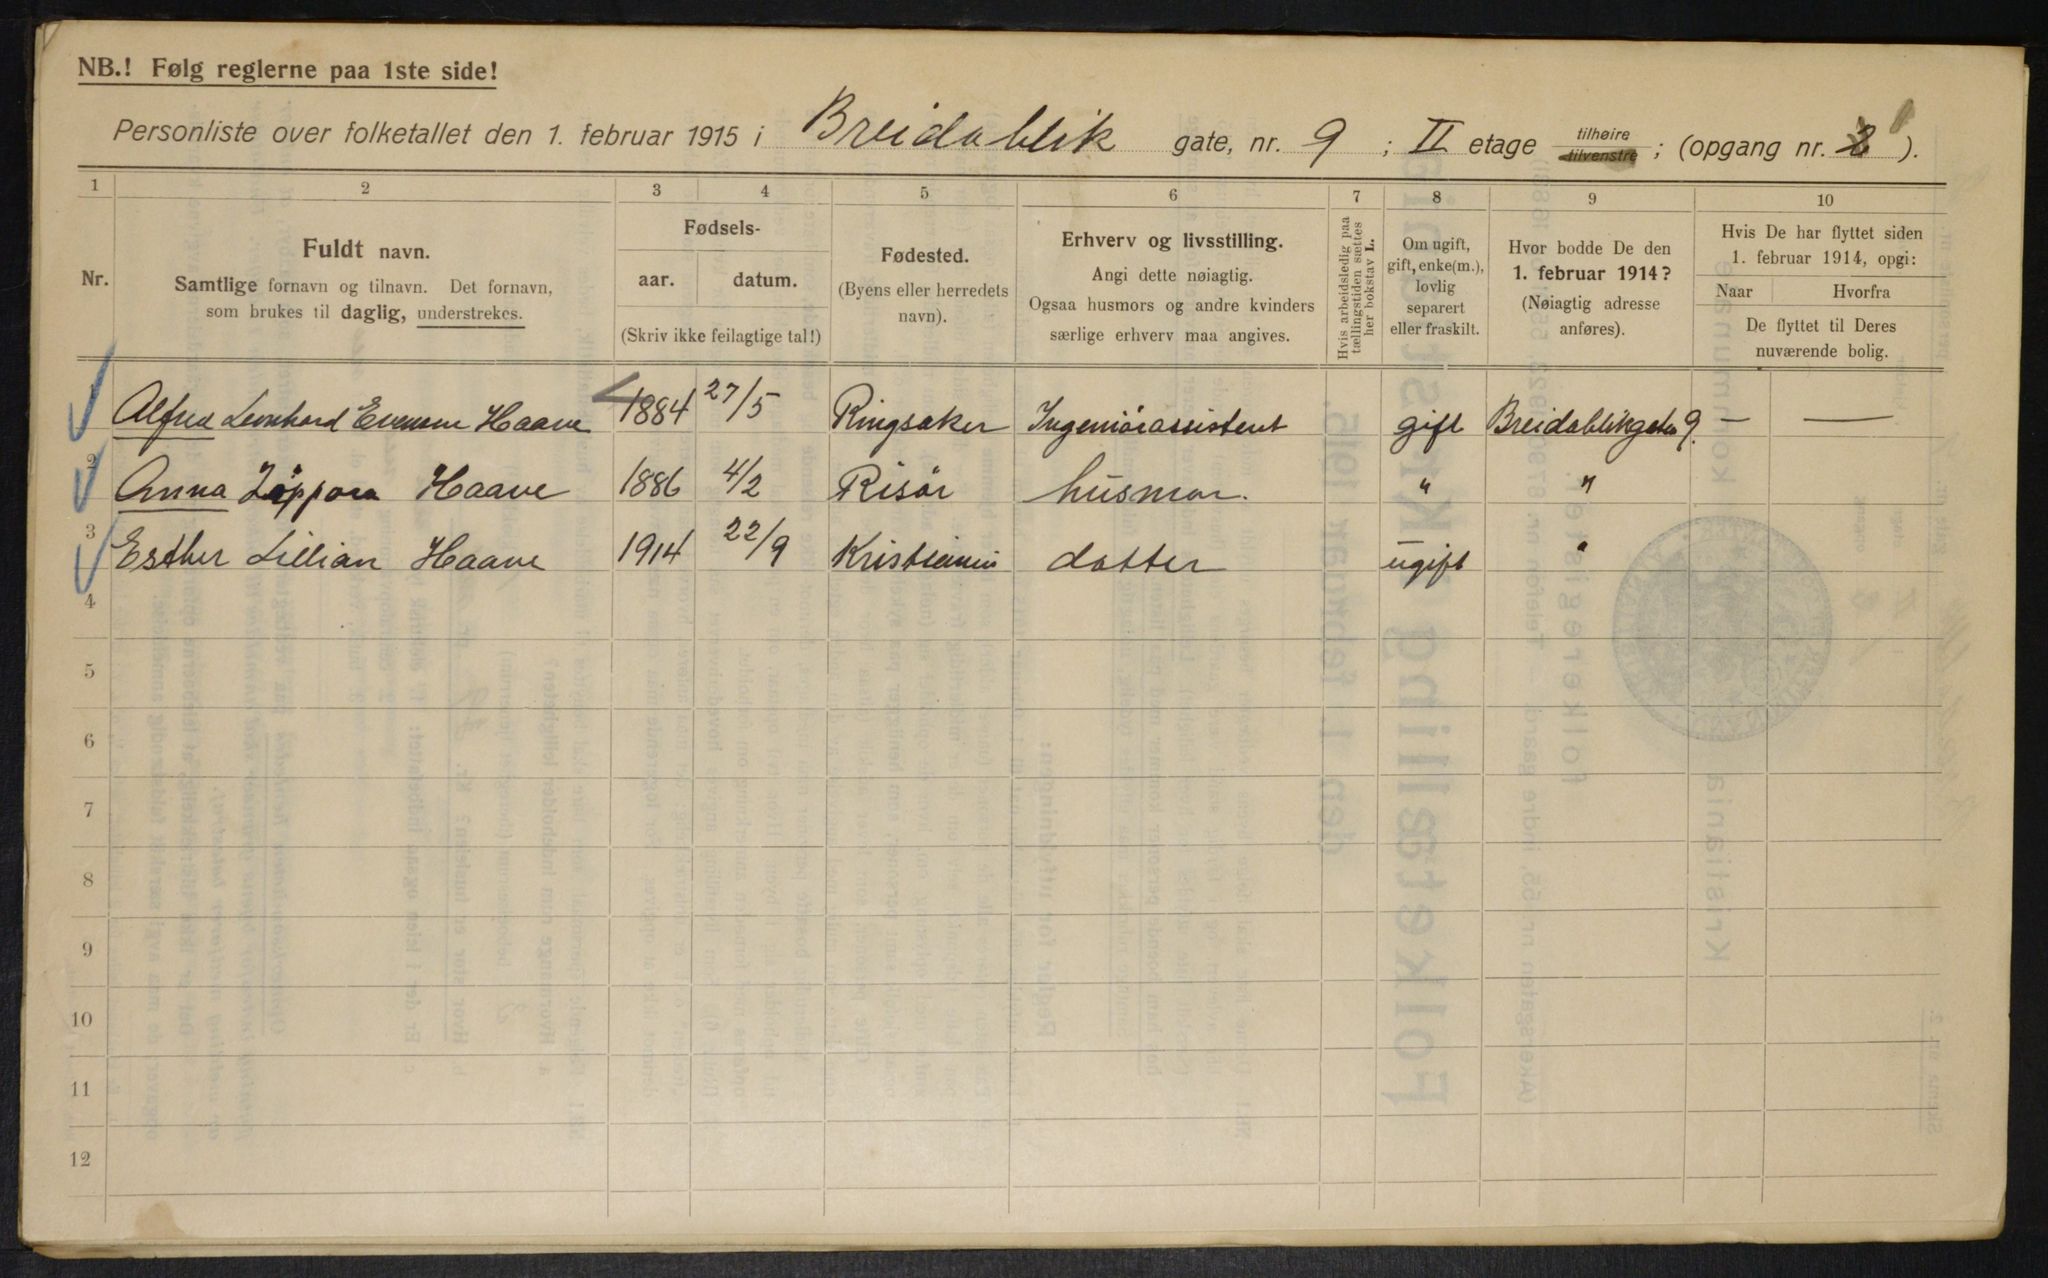 NB.! Følg reglerne paa 1ste side!
Personliste over folketallet den 1. februar 1915 i Breidablik gate, nr. 9 ; II etage tilhøire tilvenstre ; (opgang nr. ).
1 2 3 4 5 6 7 8 9 10
Nr.
Fuldt navn.
Samtlige fornavn og tilnavn. Det fornavn,
som brukes til daglig, understrekes.
Fødsels-
aar. datum.
(Skriv ikke feilagtige tal!)
Fødested.
(Byens eller herredets
navn).
Erhverv og livsstilling.
Angi dette nøiagtig.
Ogsaa husmors og andre kvinders
særlige erhverv maa angives.
Hvis arbeidsledig paa
tællingstiden sættes
her bokstav L.
Om ugift,
gift, enke(m.),
lovlig
separert
eller fraskilt.
Hvor bodde De den
1. februar 1914?
(Nøiagtig adresse
anføres).
Hvis De har flyttet siden
1. februar 1914, opgi:
Naar Hvorfra
De flyttet til Deres
nuværende bolig.
1 Alfred Leonhard Evensen Haave 1884 27/5 Ringsaker Ingeniørassistent gift Breidablikgaten 9. — —
2 Anna Haave 1886 4/2 Risør husmor. " "
3 Esther Lillian Haave 1914 22/9 Kristiania datter ugift "
4
5
6
7
8
9
10
11
12